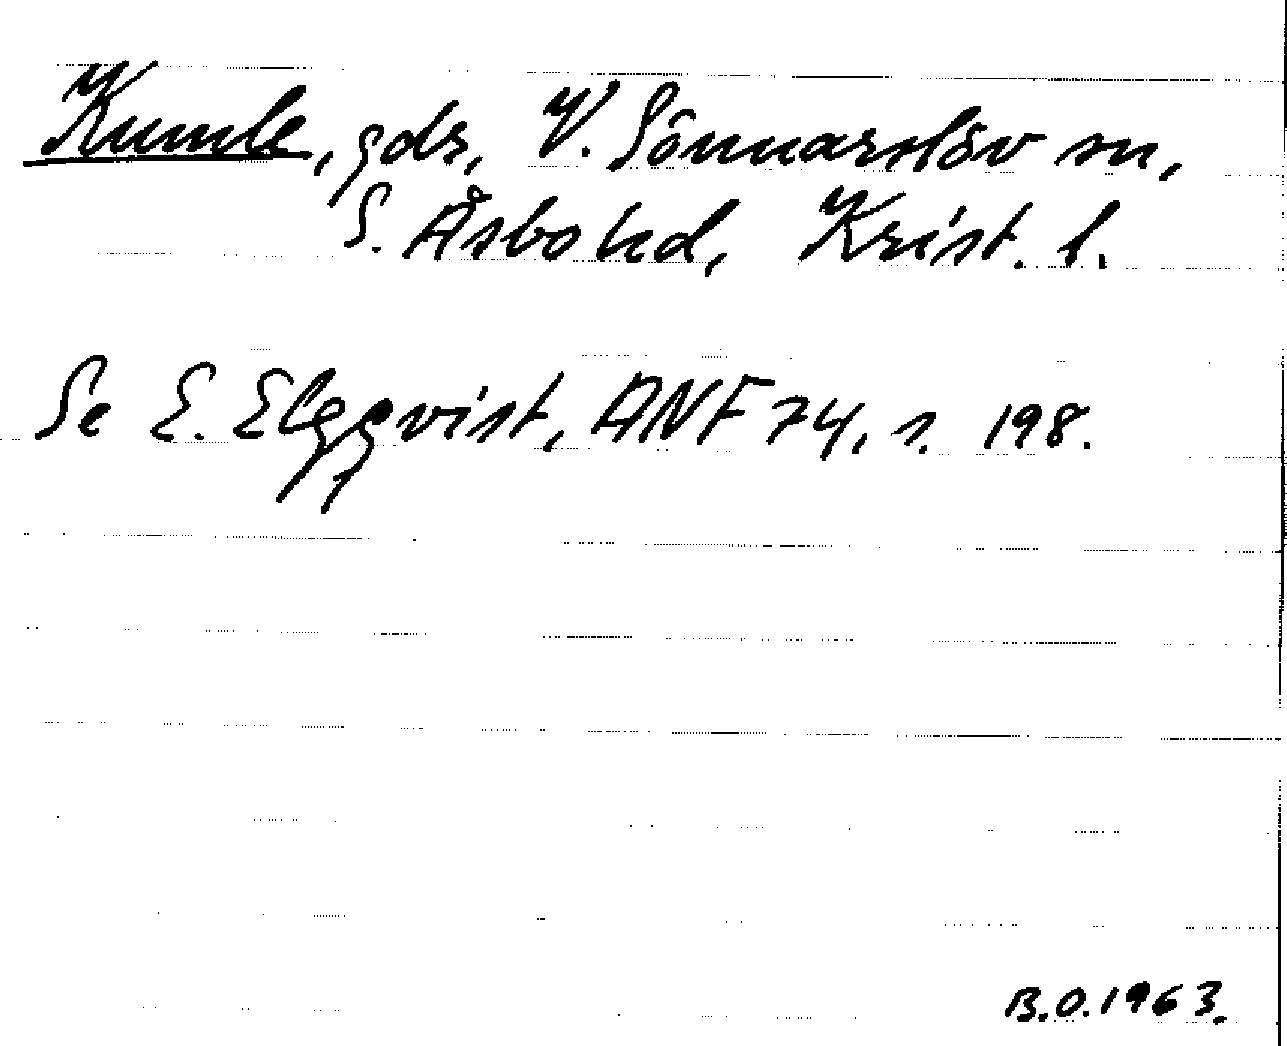 Kumle, gdr, V. Sönnarslöv sn,
S. Åsbo hd, Krist. l.
Se E. Elgqvist, ANF 74, s. 198.
B.O. 1963.